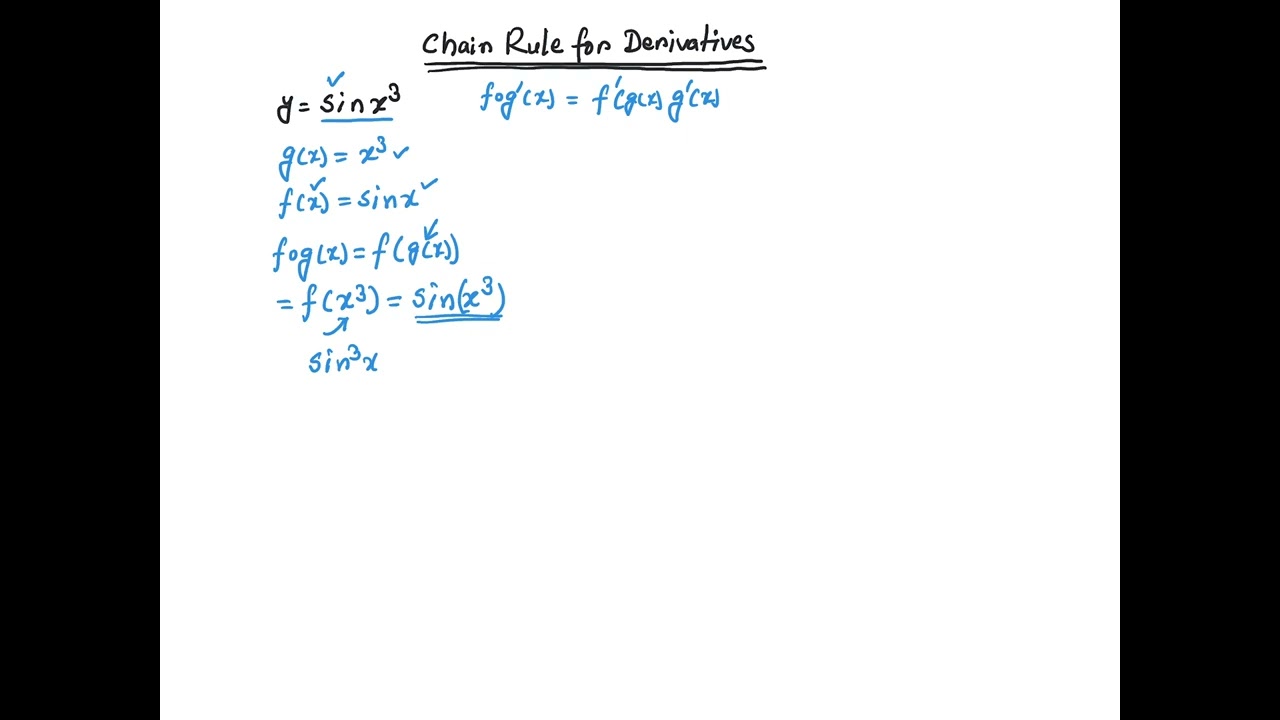 Chain Rule for Derivatives
y = sin x³
fog'(x) = f'(g(x) g'(x)
g(x) = x³ ✓
f(x) = sin x ✓
fog(x) = f(g(x))
= f(x³) = sin(x³)
sin³x